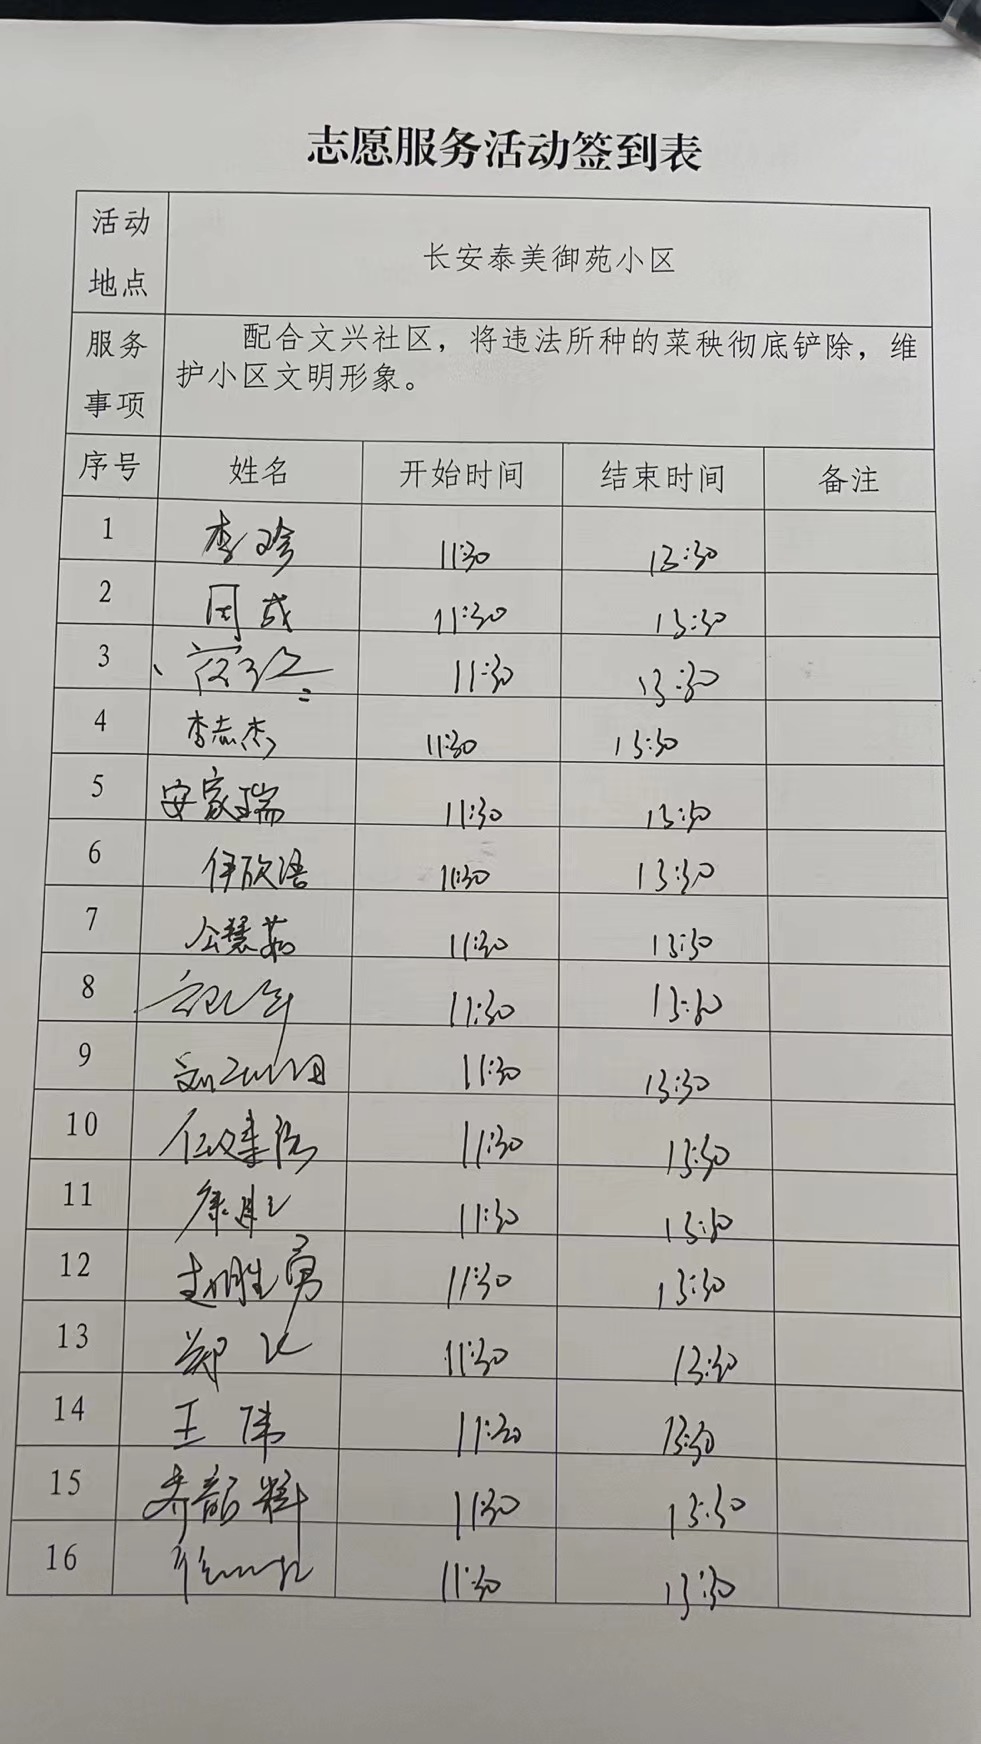 志愿服务活动签到表
活动地点 长安泰美御苑小区
服务事项 配合文兴社区，将违法所种的菜秧彻底铲除，维
护小区文明形象。
序号 姓名 开始时间 结束时间 备注
1 李珍 11:30 13:30
2 周成 11:30 13:30
3 11:30 13:30
4 李志杰 11:30 13:30
5 安家瑞 11:30 13:30
6 伊欣语 11:30 13:30
7 公慧茹 11:30 13:30
8 11:30 13:30
9 11:30 13:30
10 11:30 13:30
11 11:30 13:30
12 赵胜勇 11:30 13:30
13 郑 11:30 13:30
14 王伟 11:30 13:30
15 乔韶 11:30 13:30
16 11:30 13:30